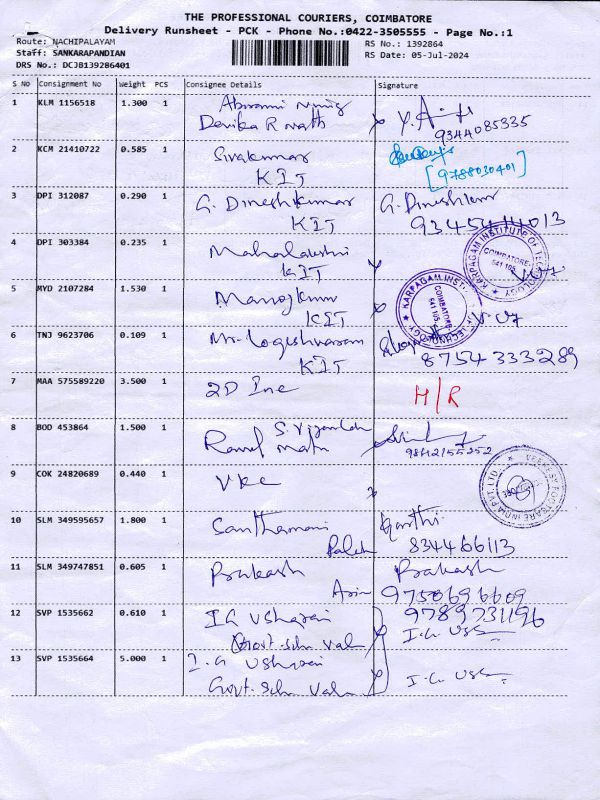 THE PROFESSIONAL COURIERS, COIMBATORE
Delivery Runsheet - PCK - Phone No.:0422-3505555 - Page No.:1
Route: NACHIPALAYAM
RS No.: 1392864
Staff: SANKARAPANDIAN
RS Date: 05-Jul-2024
DRS No.: DCJB139286401
S NO Consignment No Weight PCS Consignee Details Signature
1 KLM 1156518 1.300 1
Devika R Nath
9344085335
2 KCM 21410722 0.585 1 Sivakumar
KIT
[9788030401]
3 DPI 312087 0.290 1 G. Dineshkumar G. Dineshkumar
KIT
4 DPI 303384 0.235 1 Mahalakshmi
KIT
KARPAGAM INSTITUTE OF TECHNOLOGY
COIMBATORE-
641 105
5 MYD 2107284 1.530 1 Manojkumar
KIT
KARPAGAM INSTITUTE OF TECHNOLOGY
COIMBATORE
641 105
6 TNJ 9623706 0.109 1 Mr. Logeshwaram
KIT
8754333289
7 MAA 575589220 3.500 1 2D Inc H/R
8 BOD 453864 1.500 1
9842155252
9 COK 24820689 0.440 1 VKC
VEEKESY FOOTCARE INDIA PVT. LTD.
10 SLM 349595657 1.800 1 Santhamani Karthi
834466113
11 SLM 349747851 0.605 1 Prakash Prakash
9750696609
12 SVP 1535662 0.610 1 I.G Usharani 9789731196
Govt. Schl
13 SVP 1535664 5.000 1 I.G Usharani
Govt. Schl